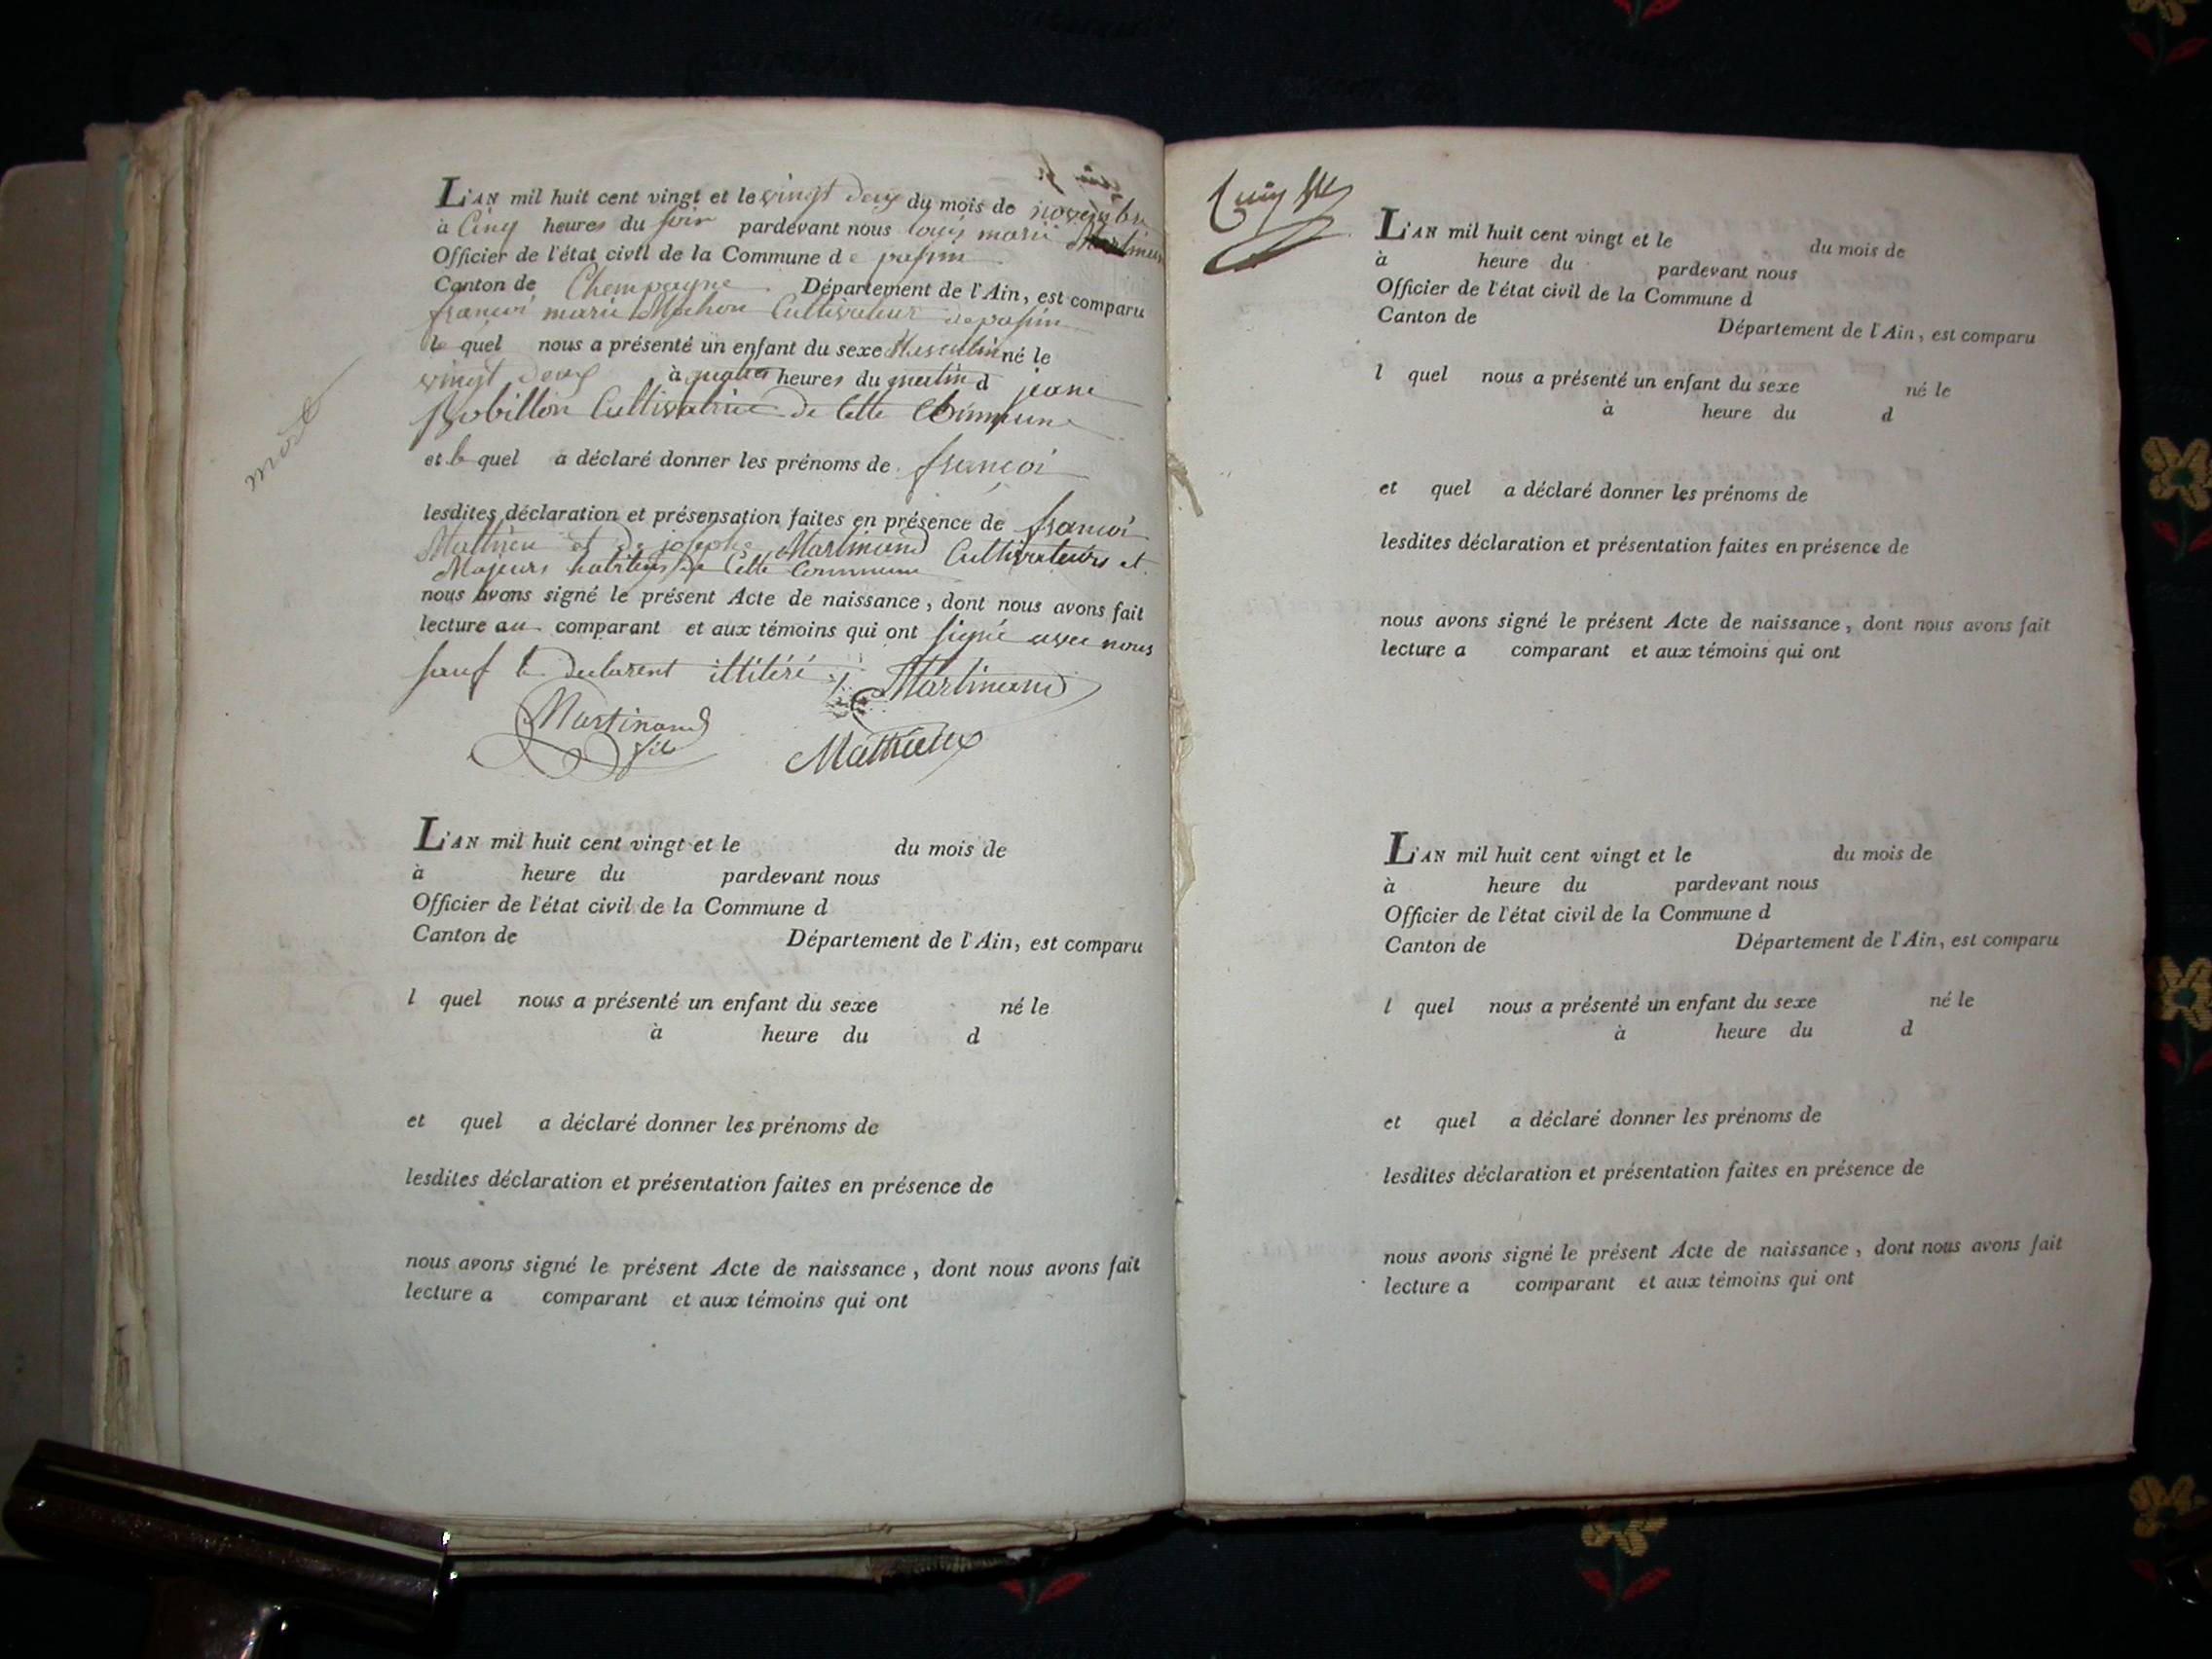 L'AN mil huit cent vingt et le vingt deux du mois de novembre
à Cinq heures du soir pardevant nous louis marie Martinand
Officier de l'état civil de la Commune de pasin
Canton de Champagne Département de l'Ain, est comparu
françoi marie Machon Cultivateur de pasin
le quel nous a présenté un enfant du sexe Masculin né le
vingt deux à quatre heures du matin d jeane
Robillon Cultivatrice de Cette Commune
et le quel a déclaré donner les prénoms de françoi
mort
lesdites déclaration et présensation faites en présence de françoi
Mathieu et de josephe Martinand Cultivateurs et
Majeurs habitens de Cette Commune
nous avons signé le présent Acte de naissance, dont nous avons fait
lecture au comparant et aux témoins qui ont signé avec nous
sauf le declarent illitéré
Martinand
Martinand
fils
Mathieux
L'AN mil huit cent vingt et le du mois de
à heure du pardevant nous
Officier de l'état civil de la Commune d
Canton de Département de l'Ain, est comparu
l quel nous a présenté un enfant du sexe né le
à heure du d
et quel a déclaré donner les prénoms de
lesdites déclaration et présentation faites en présence de
nous avons signé le présent Acte de naissance, dont nous avons fait
lecture a comparant et aux témoins qui ont
L'AN mil huit cent vingt et le du mois de
à heure du pardevant nous
Officier de l'état civil de la Commune d
Canton de Département de l'Ain, est comparu
l quel nous a présenté un enfant du sexe né le
à heure du d
et quel a déclaré donner les prénoms de
lesdites déclaration et présentation faites en présence de
nous avons signé le présent Acte de naissance, dont nous avons fait
lecture a comparant et aux témoins qui ont
L'AN mil huit cent vingt et le du mois de
à heure du pardevant nous
Officier de l'état civil de la Commune d
Canton de Département de l'Ain, est comparu
l quel nous a présenté un enfant du sexe né le
à heure du d
et quel a déclaré donner les prénoms de
lesdites déclaration et présentation faites en présence de
nous avons signé le présent Acte de naissance, dont nous avons fait
lecture a comparant et aux témoins qui ont